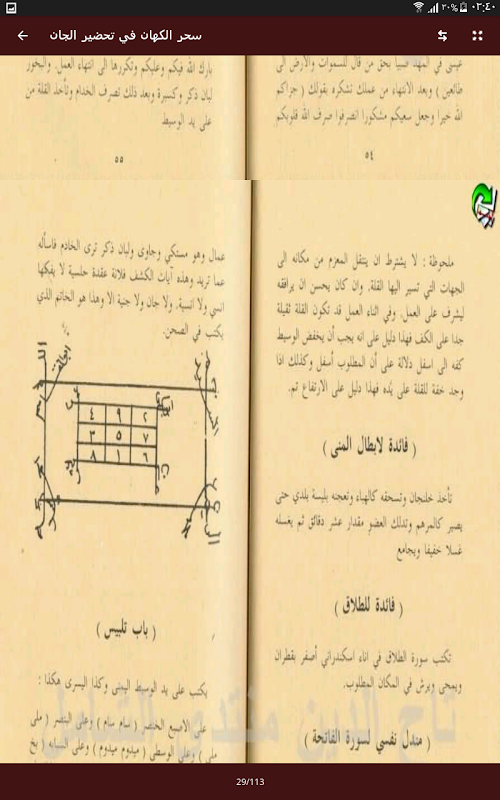 ٠٣:٤٠
٢٠%
سحر الكهان في تحضير الجان
عيسى في المهد صبيا بحق من قال للسموات والأرض الى
طائعين ) وبعد الانتهاء من عملك تشكره بقولك ( جزاكم
الله خيرا وجعل سعيكم مشكورا انصرفوا صرف الله قلوبكم
٥٤
بارك الله فيكم وعليكم وتكررها الى انتهاء العمل. والبخور
لبان ذكر وكسبرة وبعد ذلك تصرف الخدام وتأخذ القلة من
على يد الوسيط
٥٥
ملحوظة : لا يشترط ان ينتقل المعزم من مكانه الى
الجهات التي تسير اليها القلة. وان كان يحسن ان يرافقه
ليشرف على العمل. وفي اثناء العمل قد تكون القلة ثقيلة
جدا على الكف فهذا دليل على انه يجب أن يخفض الوسيط
كفه الى اسفل دلالة على أن المطلوب أسفل وكذلك اذا
وجد خفة للقلة على يده فهذا دليل على الارتفاع تم.
( فائدة لابطال المنى )
تأخذ خلنجان وتسحقه كالهباء وتعجنه بلبسة بلدي حتى
يصير كالمرهم وتدلك العضو مقدار عشر دقائق ثم يغسله
غسلا خفيفا ويجامع
( فائدة للطلاق )
تكتب سورة الطلاق في اناء اسكندراني أصفر بقطران
ويمحى ويرش في المكان المطلوب.
( مندل نفسي لسورة الفاتحة )
عمال وهو مستكي وجاوى ولبان ذكر ترى الخادم فاسأله
عما تريد وهذه آيات الكشف فلانة عقدة حلسية لا يفكها
انسي ولا انسية. ولا جان ولا جنية الا وهذا هو الخاتم الذي
يكتب في الصحن.
٤ ٩ ٢
٣ ٥ ٧
٨ ١ ٦
( باب تلبيس )
يكتب على يد الوسيط اليمنى وكذا اليسرى هكذا :
على الاصبع الخنصر ( سام سام ) وعلى البنصر ( ملى
ملى ) وعلى الوسطى ( ميدوم ميدوم ) وعلى السبابه ( يخ
29/113